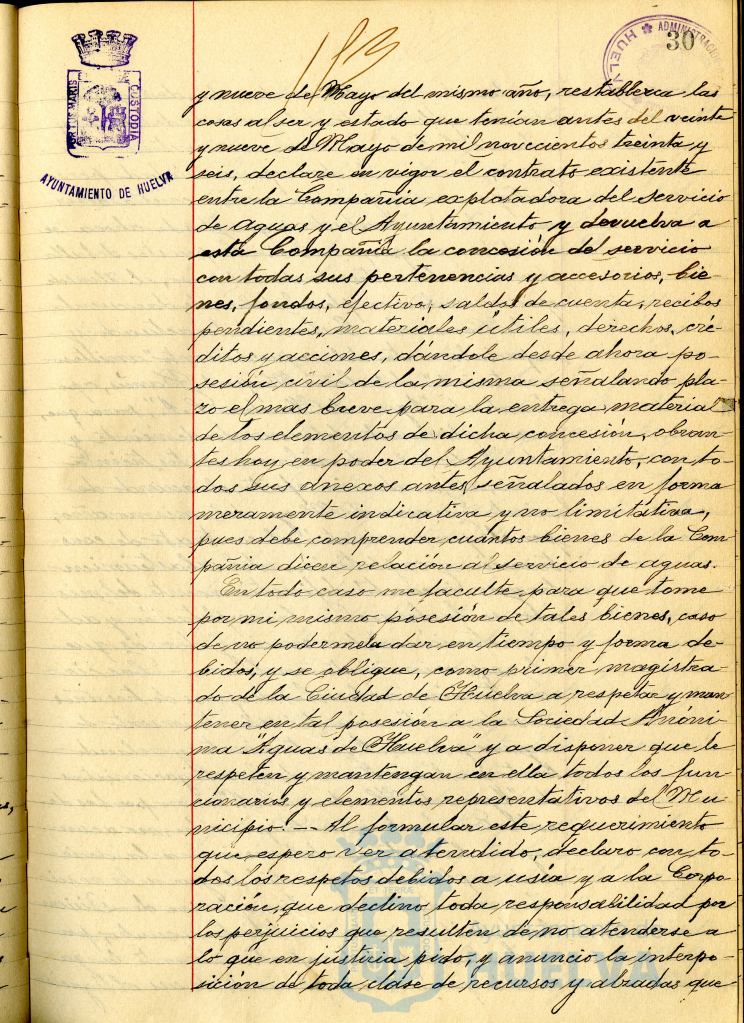 183
30
ADMINISTRACION
HUELVA
PORTUS MARIS
CUSTODIA
AYUNTAMIENTO DE HUELVA
y nueve de Mayo del mismo año, restablezca las
cosas al ser y estado que tenían antes del veinte
y nueve de Mayo de mil novecientos treinta y
seis, declare en vigor el contrato existente
entre la Compañia explotadora del servicio
de aguas y el Ayuntamiento y devuelva a
esta Compañia la concesión del servicio
con todas sus pertenencias y accesorios, bie-
nes, fondos, efectivo, saldos de cuenta, recibos
pendientes, materiales útiles, derechos, cré-
ditos y acciones, dándole desde ahora po-
sesión civil de la misma señalando pla-
zo el mas breve para la entrega material
de los elementos de dicha concesión, obran-
tes hoy en poder del Ayuntamiento, con to-
dos sus anexos antes señalados en forma
meramente indicativa y no limitativa,
pues debe comprender cuántos bienes de la Com-
pañia dicen relación al servicio de aguas.
En todo caso me faculte para que tome
por mi mismo posesión de tales bienes, caso
de no podermela dar en tiempo y forma de-
bidos, y se oblique, como primer magistra-
do de la Ciudad de Huelva a respetar y man-
tener en tal posesión a la Sociedad Anóni-
ma "Aguas de Huelva" y a disponer que le
respeten y mantengan en ella todos los fun-
cionarios y elementos representativos del Mu-
nicipio. — Al formular este requerimiento
que espero ver atendido, declaro con to-
dos los respetos debidos a usía y a la Corpo-
ración, que declino toda responsabilidad por
los perjuicios que resulten de no atenderse a
lo que en justicia pido, y anuncio la interpo-
sición de toda clase de recursos y alzadas que
HUELVA